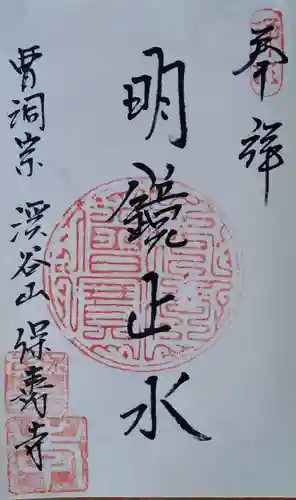 奉拝
明鏡止水
曹洞宗 渓谷山 保壽寺